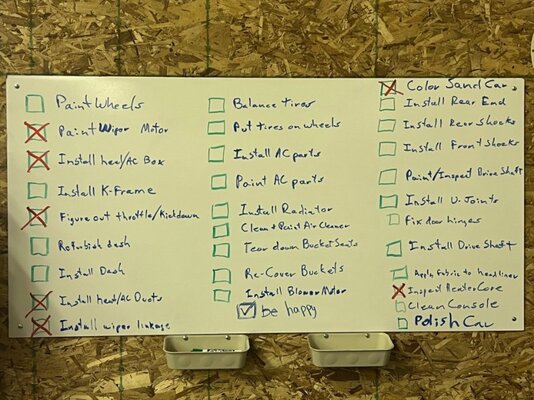 Paint Wheels
Paint Wiper Motor
Install heat/AC Box
Install K-Frame
Figure out throttle/Kickdown
Refurbish dash
Install Dash
Install heat/AC Ducts
Install wiper linkage
Balance tires
Put tires on wheels
Install AC parts
Paint AC parts
Install Radiator
Clean + Paint Air Cleaner
Tear down Bucket Seats
Re-Cover Buckets
Install Blower Motor
be happy
Color Sand Car
Install Rear End
Install Rear Shocks
Install Front Shocks
Paint/Inspect Drive Shaft
Install U-Joints
Fix door hinges
Install Drive Shaft
Apply Fabric to headliner
Inspect Heater Core
Clean Console
Polish Car